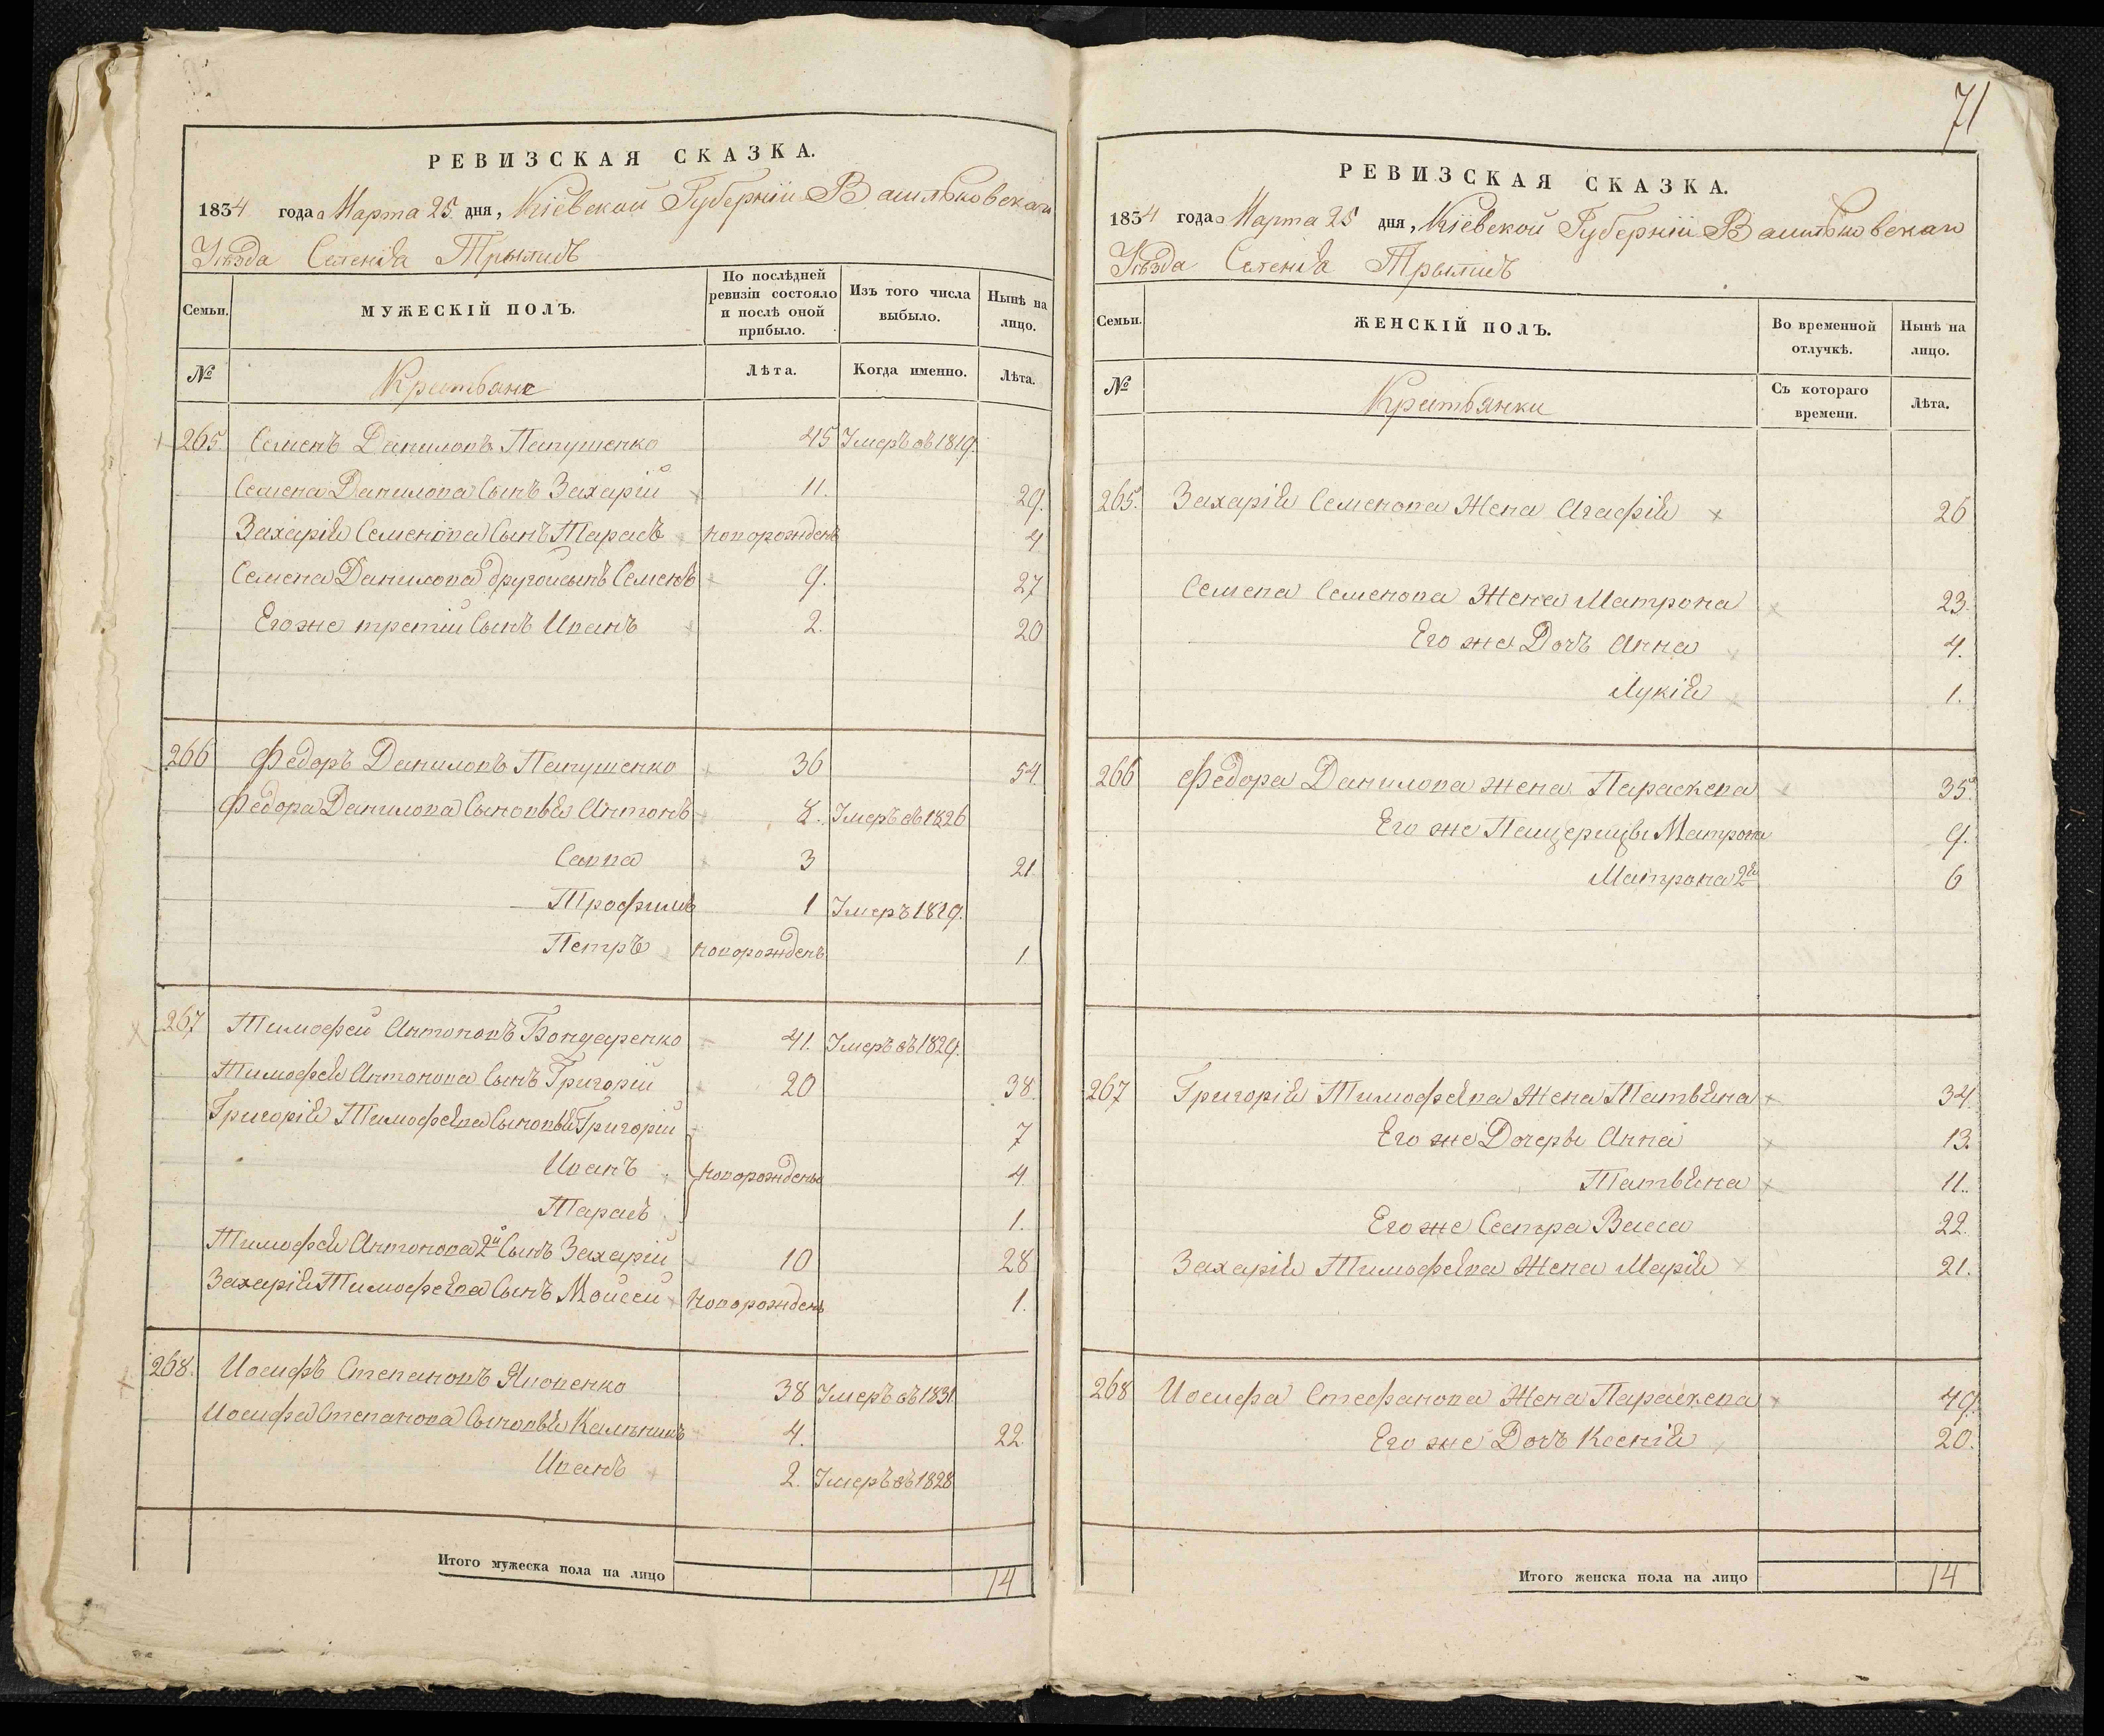 РЕВИЗСКАЯ СКАЗКА.
1834 года Марта 25 дня, Кіевской Губерніи Васильковскаго
Уѣзда Селенія Трылисъ
Семьи. МУЖЕСКІЙ ПОЛЪ. По послѣдней ревизіи состояло и послѣ оной прибыло. Изъ того числа выбыло. Нынѣ на лицо.
№ Крестьяне Лѣта. Когда именно. Лѣта.
265. Семенъ Даниловъ Папушенко 45 Умеръ въ 1819.
Семена Данилова Сынъ Захарій 11. 29.
Захарія Семенова Сынъ Тарасъ новорожденъ 4
Семена Данилова другой сынъ Семенъ 9. 27
Егоже третій Сынъ Иванъ 2. 20
266 Федоръ Даниловъ Папушенко 36 54
Федора Данилова Сыновья Антонъ 8. Умеръ въ 1826
Савва 3 21
Трофимъ 1 Умеръ 1819.
Петръ новорожденъ 1
267 Тимофей Антоновъ Бондаренко 41. Умеръ въ 1829.
Тимофея Антонова Сынъ Григорій 20 38.
Григорія Тимофеева Сыновья Григорій 7
Иванъ новорожденые 4.
Тарасъ 1.
Тимофея Антонова 2й Сынъ Захарій 10 28
Захарія Тимофеева Сынъ Моисей новорожденъ 1.
268. Иосифъ Степановъ 38 Умеръ въ 1831.
Иосифа Степанова Сыновья 4. 22.
Иванъ 2. Умеръ въ 1828
Итого мужеска пола на лицо 14
71
РЕВИЗСКАЯ СКАЗКА.
1834 года Марта 25 дня, Кіевской Губерніи Васильковскаго
Уѣзда Селенія Трылисъ
Семьи. ЖЕНСКІЙ ПОЛЪ. Во временной отлучкѣ. Нынѣ на лицо.
№ Крестьянки Съ котораго времени. Лѣта.
265. Захарія Семенова Жена Агафія 26
Семена Семенова Жена Матрона 23.
Его же Дочь Анна 4.
Лукія 1.
266 Федора Данилова жена Параскева 35.
Его же Пащерицы Матрона 9.
Матрона 2я 6
267 Григорія Тимофеева Жена Татьяна 34.
Его же Дочеры Анна 13.
Татьяна 11.
Его же Сестра Васса 22.
Захарія Тимофеева Жена Марія 21.
268 Иосифа Стефанова Жена Параскева 49.
Его же Дочь Ксенія 20.
Итого женска пола на лицо 14